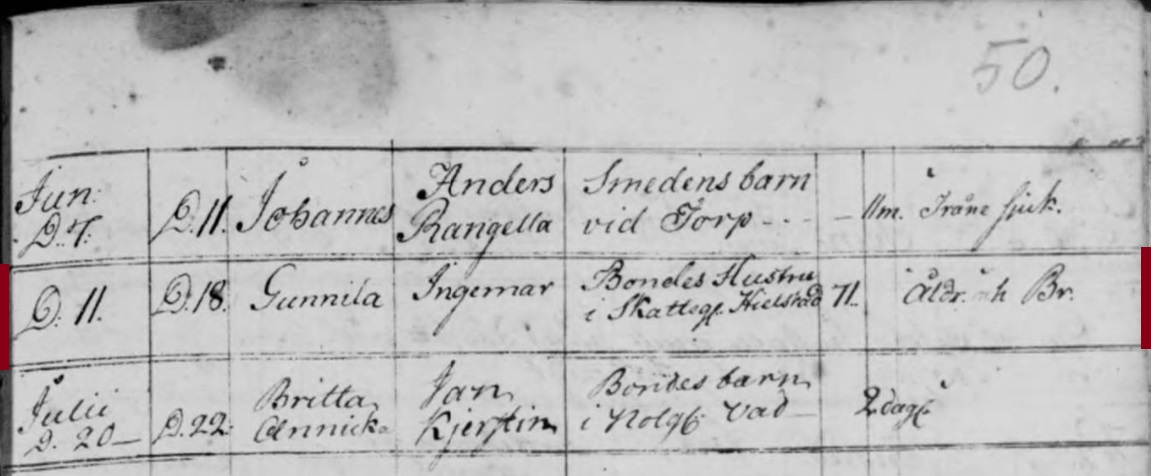 50.
Jun: D. 11. Johannes Anders Smedens barn
D. 7. Rangella vid Torp - 11m. sjuk.
D. 11. D. 18. Gunnila Ingemar Bondes Hustru 71. Åldr. Br.
i Skattegs. Hielstad
Julii D. 22. Britta Jan Bondes barn 2 dags
D. 20 - Annicka Kjerstin i Nolgs. Vad